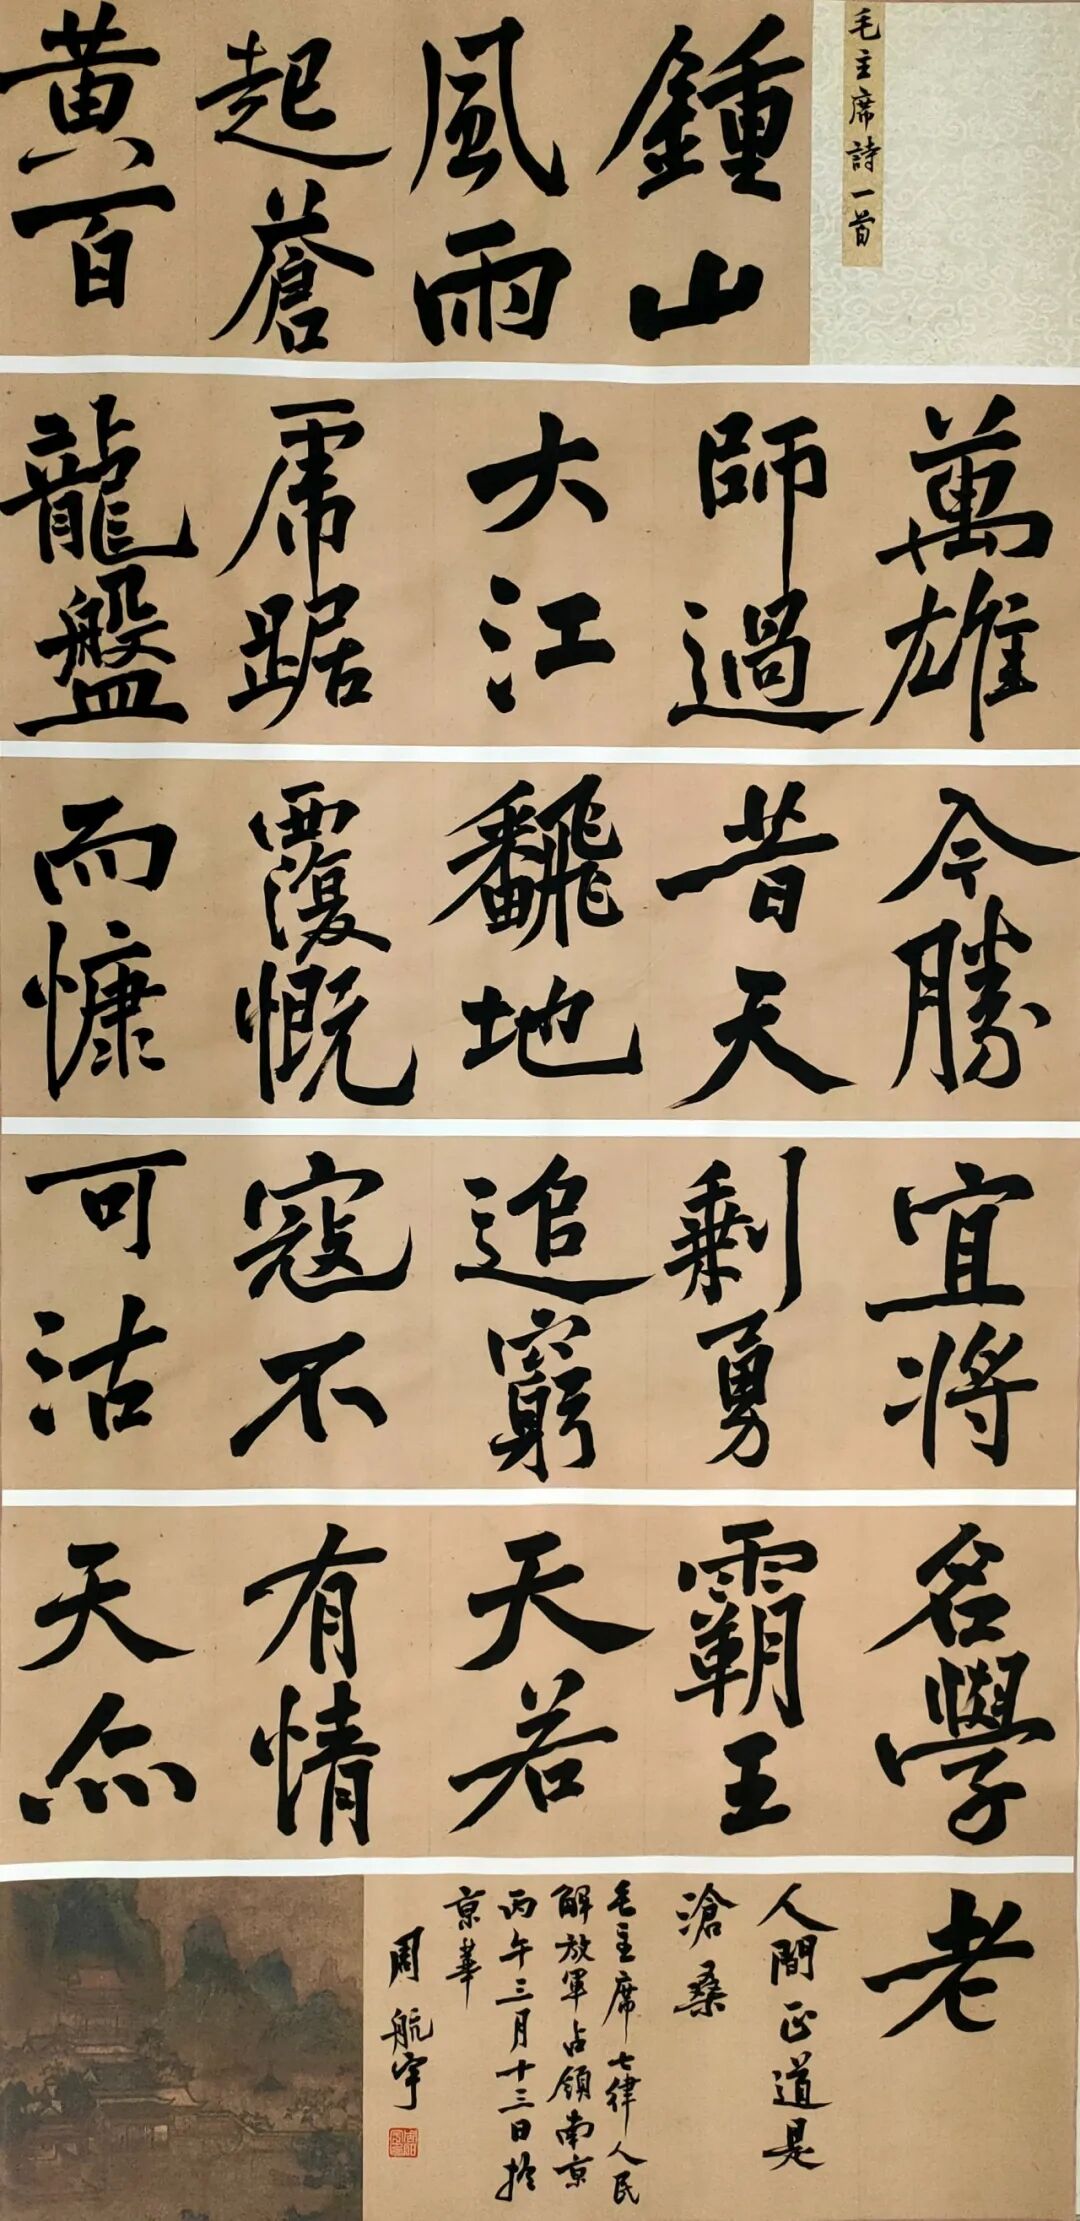 毛主席詩一首
鍾山
風雨
起蒼
黄百
萬雄
師過
大江
虎踞
龍盤
今勝
昔天
飜地
覆慨
而慷
宜將
剩勇
追窮
寇不
可沽
名學
霸王
天若
有情
天亦
老
人間正道是
滄桑
毛主席七律人民
解放軍占領南京
丙午三月十三日於
京華
周航宇